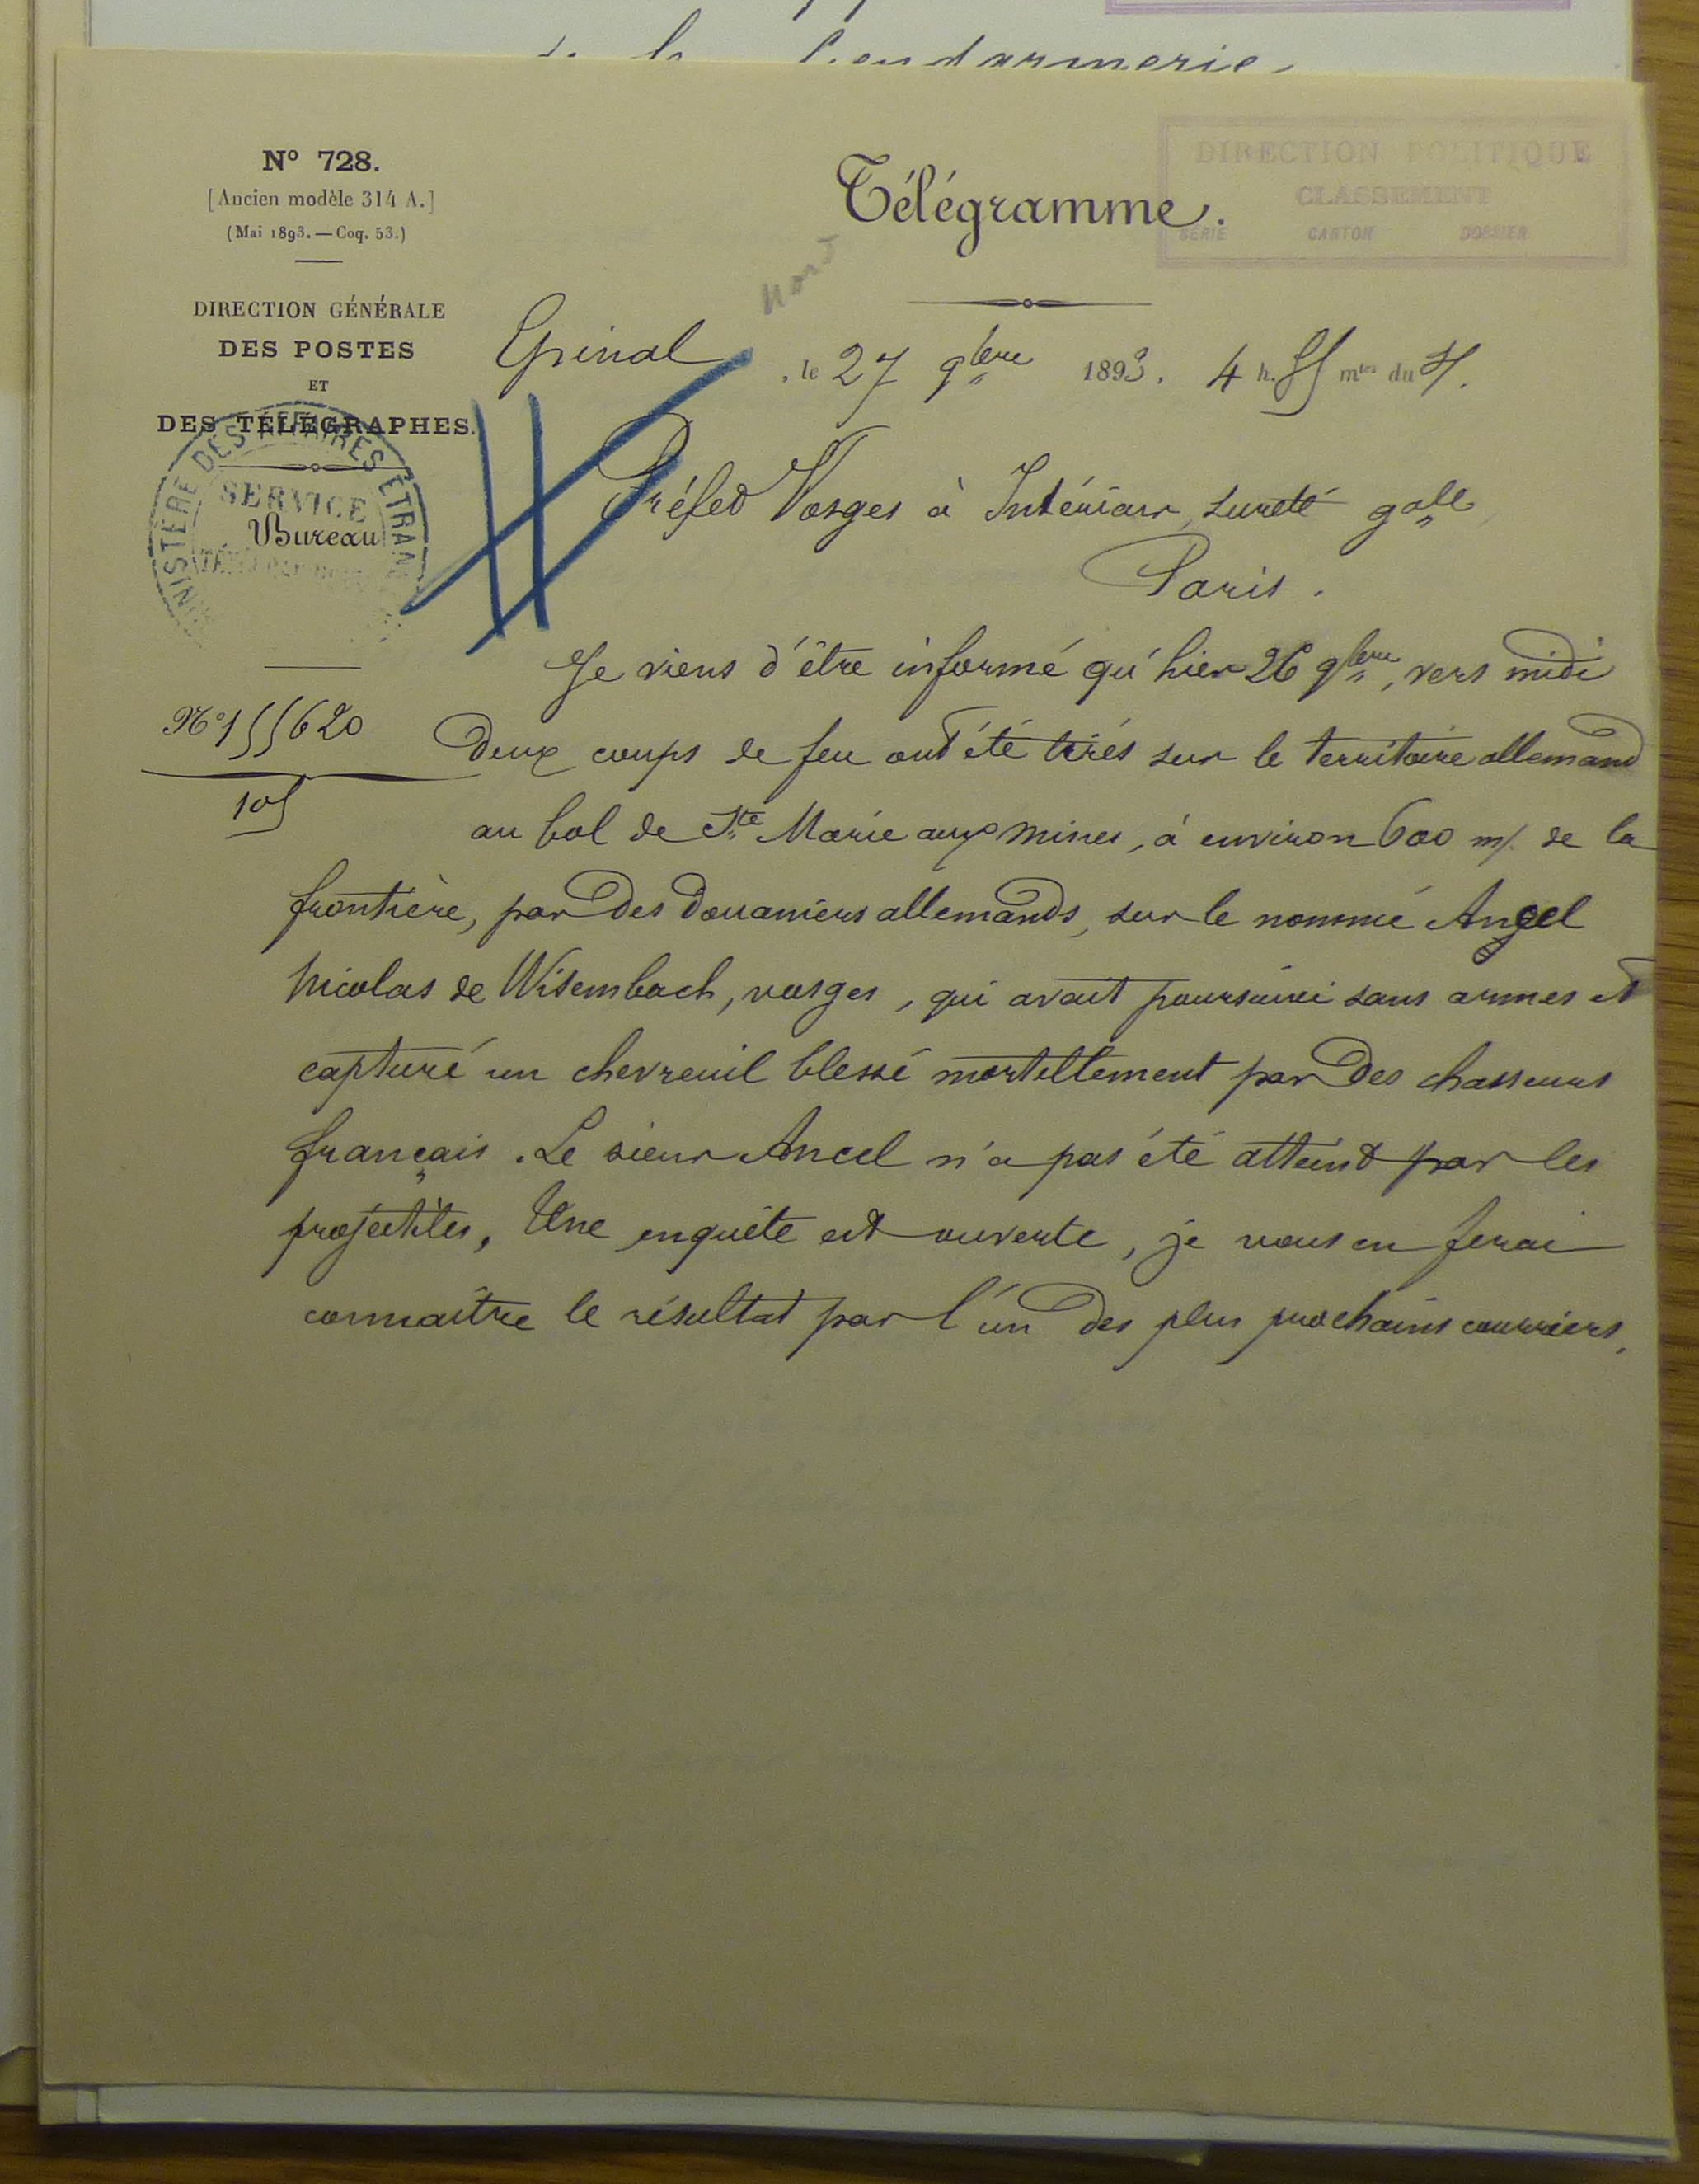 Gendarmerie
N° 728.
[Ancien modèle 314 A.]
(Mai 1893. — Coq. 53.)
DIRECTION GÉNÉRALE
DES POSTES
ET
DES TÉLÉGRAPHES.
Télégramme.
DIRECTION POLITIQUE
CLASSEMENT
SÉRIE CARTON DOSSIER
Nord
MINISTÈRE DES AFFAIRES ÉTRAN
SERVICE
Bureau
Epinal, le 27 9bre 1893. 4 h. 55 mtes du S.
Préfet Vosges à Intérieur, sureté gale
Paris.
N° 155620
105
Je viens d'être informé qu'hier 26 9bre, vers midi
deux coups de feu ont été tirés sur le territoire allemand
au Col de Ste Marie aux Mines, à environ 600 m/. de la
frontière, par des douaniers allemands, sur le nommé Ancel
Nicolas de Wisembach, vosges, qui avait poursuivi sans armes et
capturé un chevreuil blessé mortellement par des chasseurs
français. Le sieur Ancel n'a pas été atteint par les
projectiles, Une enquête est ouverte, je vous en ferai
connaître le résultat par l'un des plus prochains courriers.